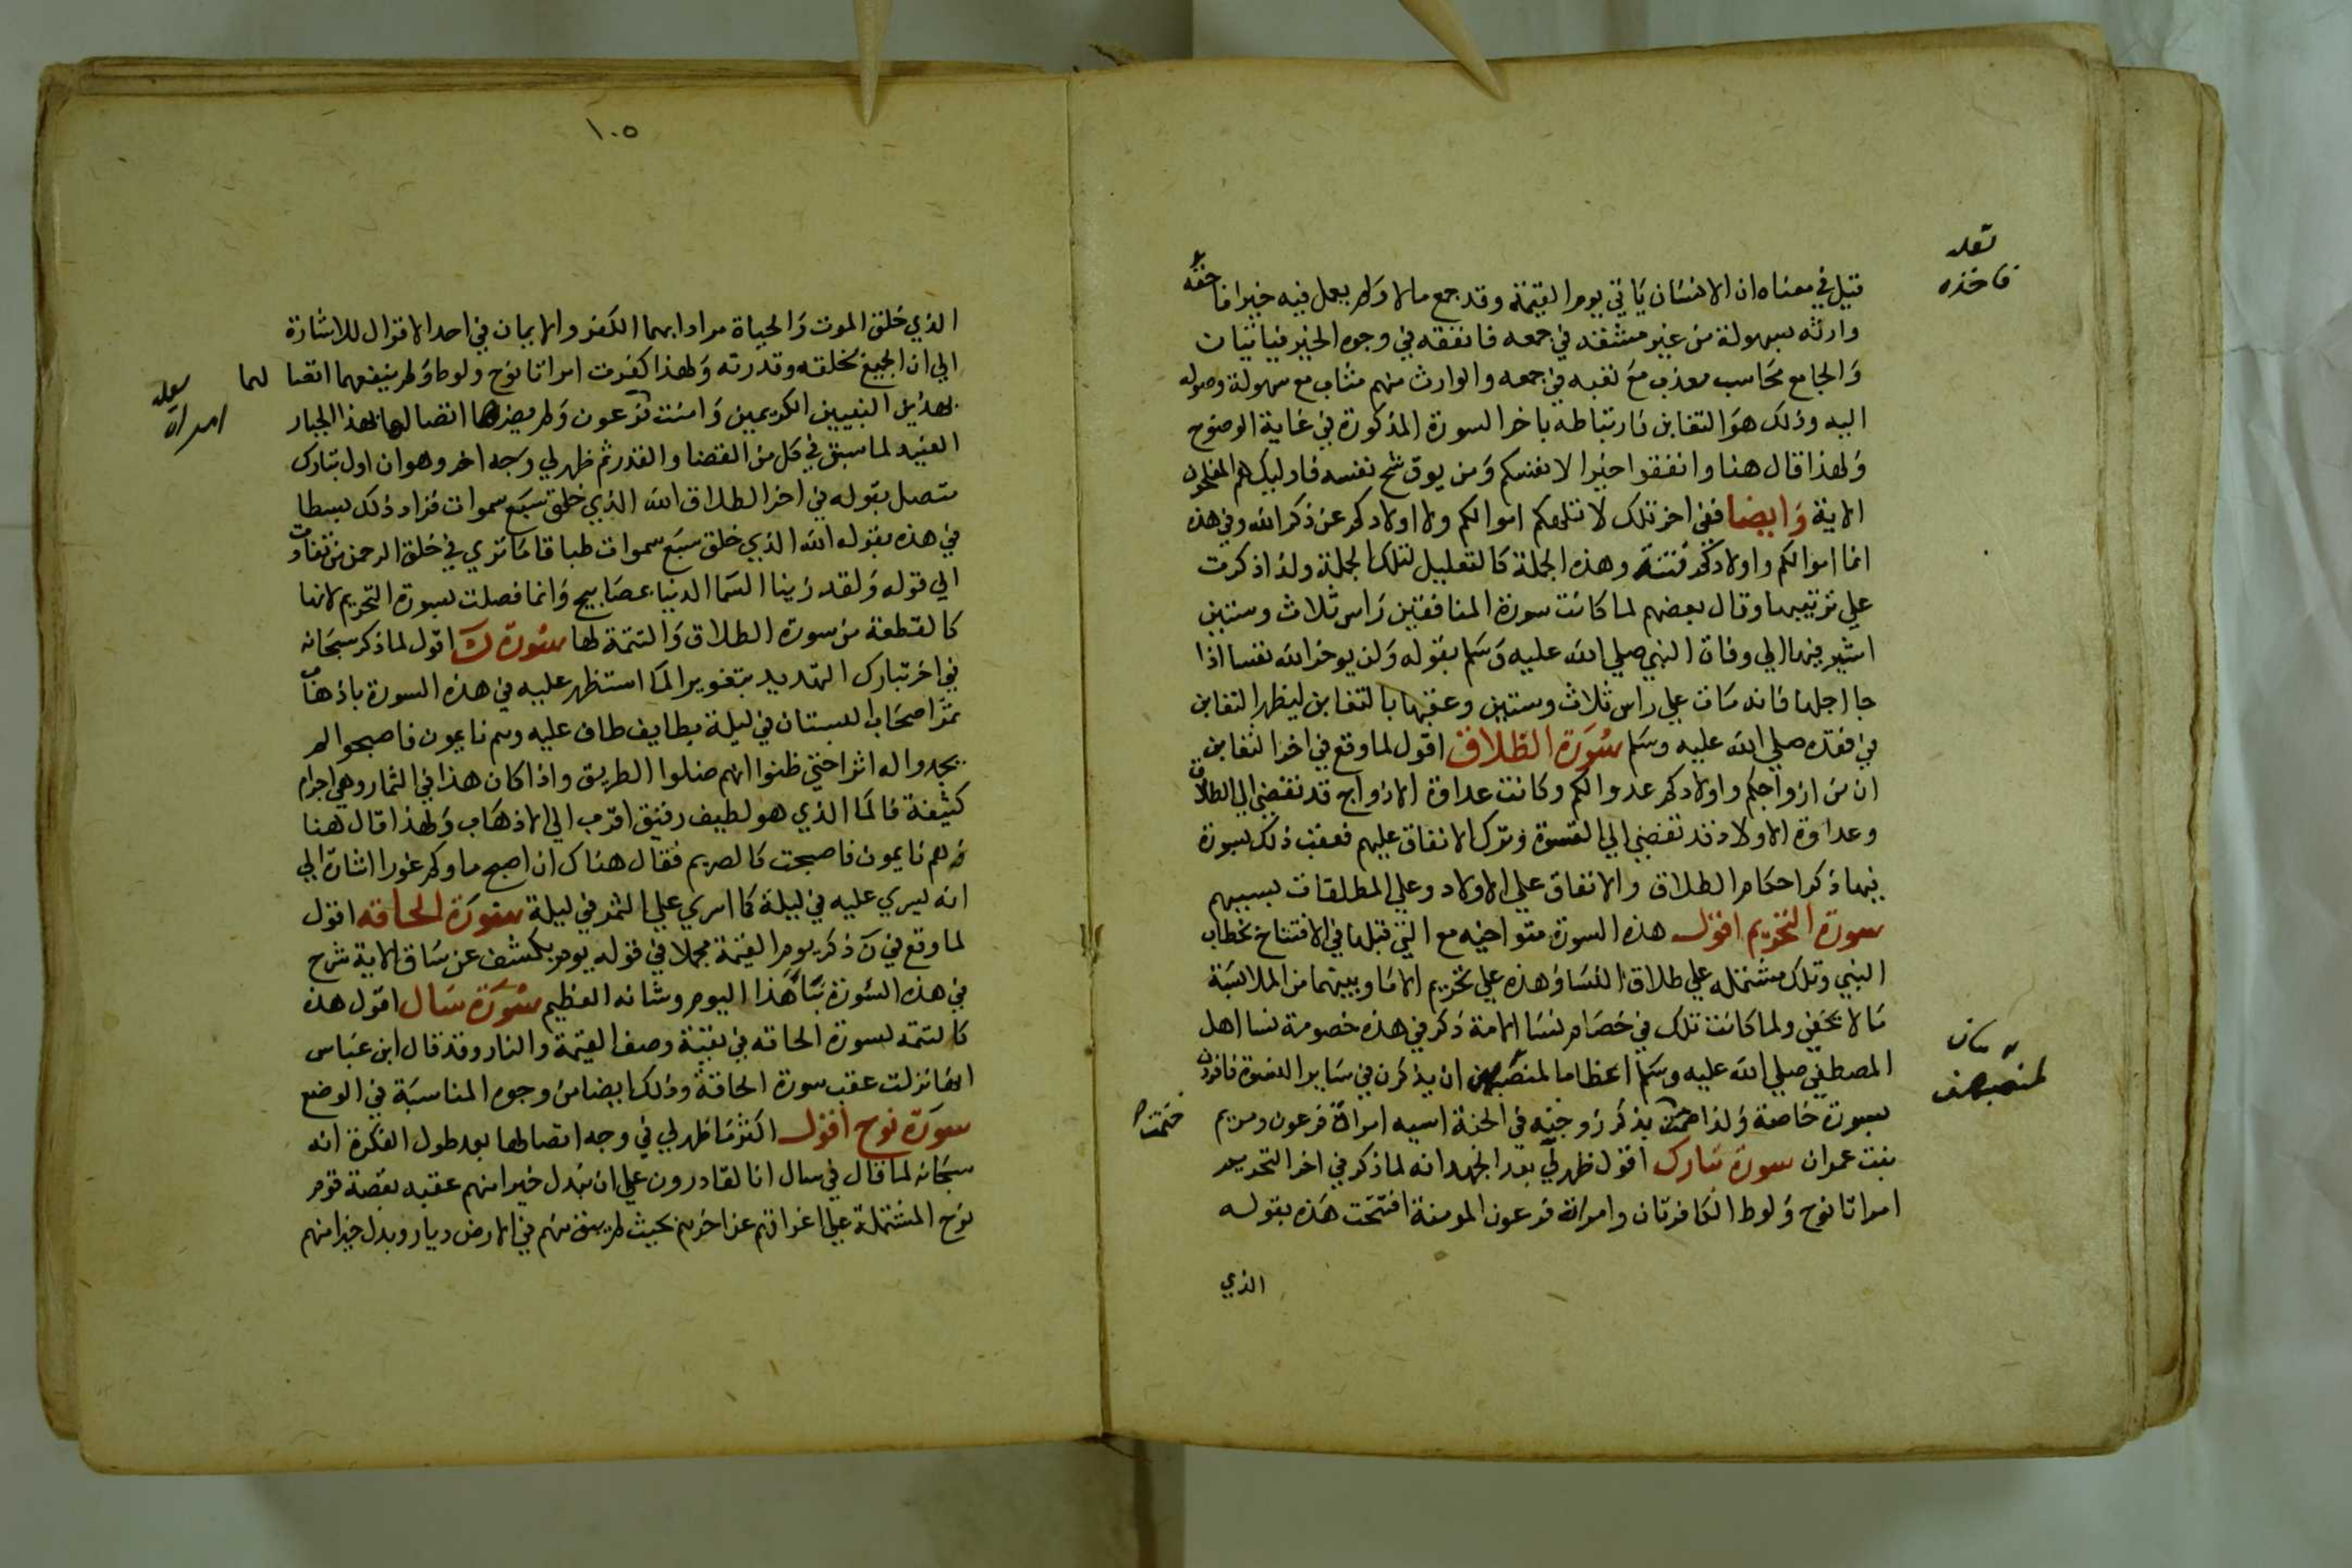 قيل في معناه ان الانسان ياتي يوم القيمة وقد جمع مالا ولم يعمل فيه خيرا فاخذه
وارثه بسهولة من غير مشقة في جمعه فانفقه في وجوه الخير
والجامع محاسب معذب مع تعبه في جمعه والوارث منهم مثاب مع سهولة وصوله
اليه وذلك هو التغابن فارتباطه باخر السورة المذكورة في غاية الوضوح
ولهذا قال هنا وانفقوا خيرا لانفسكم ومن يوق شح نفسه فاوليك هم المفلحون
الاية وايضا ففي اخر تلك لا تلهكم اموالكم ولا اولادكم عن ذكر الله وفي هذه
انما اموالكم واولادكم فتنة وهذه الجملة كالتعليل لتلك الجملة ولذا ذكرت
علي ترتيبها وقال بعضهم لما كانت سورة المنافقين راس ثلاث وستين
اشير فيها الي وفاة النبي صلي الله عليه وسلم بقوله ولن يوخر الله نفسا اذا
جا اجلها فانه مات علي راس ثلاث وستين وعقبها بالتغابن ليظهر التغابن
في فقده صلي الله عليه وسلم سورة الطلاق اقول لما وقع في اخر التغابن
ان من ازواجكم واولادكم عدوا لكم وكانت عداوة الازواج قد تفضي الي الطلاق
وعداوة الاولاد قد تفضي الي القسوة وترك الانفاق عليهم فعقب ذلك بسورة
فيها ذكر احكام الطلاق والانفاق علي الاولاد وعلي المطلقات بسببهم
سورة التحريم اقول هذه السورة متواخيه مع التي قبلها في الافتتاح بخطاب
النبي وتلك مشتمله علي طلاق النسا وهذه علي تحريم الاما وبينهما من الملابسة
ما لا يخفي ولما كانت تلك في خصام نسا الامة ذكر في هذه خصومة نسا اهل
المصطفي صلي الله عليه وسلم اعظاما لمنصبهن ان يذكرن في ساير النسوة فافردن
بسورة خاصة ولذا ختمت بذكر زوجتيه في الجنة اسيه امراة فرعون ومريم
بنت عمران سورة تبارك اقول ظهر لي بعد الجهد انه لما ذكر في اخر التحريم
امراتا نوح ولوط الكافرتان وامراة فرعون المومنة افتتحت هذه بقوله
الذي
فاخذه
لمنصبهن
ختمت
١٠٥
الذي خلق الموت والحياة مرادا بهما الكفر والايمان في احد الاقوال للاشارة
الي ان الجميع بخلقه وقدرته ولهذا كفرت امراتا نوح ولوط ولم ينفعهما اتصالهما
بهذين النبيين الكريمين وامنت فرعون ولم يضرها اتصالها بهذا الجبار
العنيد لما سبق في كل من القضا والقدر ثم ظهر لي وجه اخر وهو ان اول تبارك
متصل بقوله في اخر الطلاق الله الذي خلق سبع سموات فزاد ذلك بسطا
في هذه بقوله الله الذي خلق سبع سموات طباقا ما تري في خلق الرحمن من تفاوت
الي قوله ولقد زينا السما الدنيا بمصابيح وانما فصلت بسورة التحريم لانها
كالقطعة من سورة الطلاق والتتمة لها سورة ن اقول لما ذكر سبحانه
في اخر تبارك التهديد بتغوير الما استظهر عليه في هذه السورة باذهاب
ثمر اصحاب البستان في ليلة بطايف طاف عليه وهم نايمون فاصبحوا لم
يجدوا له اثرا حتي ظنوا انهم ضلوا الطريق واذا كان هذا في الثمار وهي اجرام
كثيفة فالما الذي هو لطيف رقيق اقرب الي الاذهاب ولهذا قال هنا
وهم نايمون فاصبحت كالصريم فقال هناك ان اصبح ماوكم غورا اشارة الي
انه يسري عليه في ليلة كما اسري علي الثمر في ليلة سورة الحاقه اقول
لما وقع في ن ذكر يوم القيمة مجملا في قوله يوم يكشف عن ساق الاية شرح
في هذه السورة نبا هذا اليوم وشانه العظيم سورة سال اقول هذه
كالتتمه لسورة الحاقه في بقية وصف القيمة والنار وقد قال ابن عباس
انها نزلت عقب سورة الحاقة وذلك ايضا من وجوه المناسبة في الوضع
سورة نوح اقول اكثر ما ظهر لي في وجه اتصالها بعد طول الفكرة انه
سبحانه لما قال في سال انا لقادرون علي ان نبدل خيرا منهم عقبه بقصة قوم
نوح المشتملة علي اغراقهم عن اخرهم بحيث لم يبق منهم في الارض ديار وبدل خيرا منهم
امراة